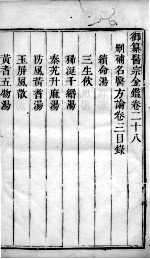 御纂醫宗金鑑卷二十八
刪補名醫方論卷三目錄
續命湯
三生飲
稀涎千緡湯
秦艽升麻湯
防風黃耆湯
玉屏風散
黃耆五物湯